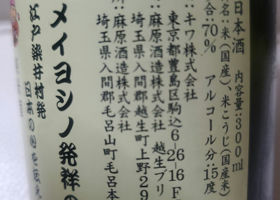 日本酒
内容量：300ml
名：米（国産）、米こうじ（国産米）
合：70% アルコール分15度
キワ株式会社
東京都豊島区駒込6-26-16F
麻原酒造株式会社 越生ブリ
埼玉県入間郡越生町上野29
麻原酒造株式会社
埼玉県入間郡毛呂山町毛呂本
メイヨシノ発祥の
江戸染井村発
日本の